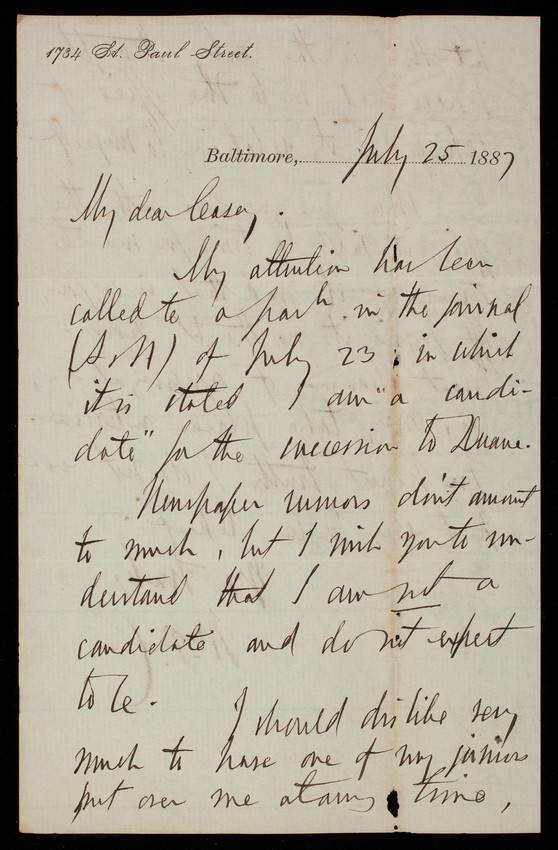 1734 St. Paul Street.
Baltimore, July 25 1887
My dear Casey.
My attention has been
called to a parh. in the journal
(A & N) of July 23 in which
it is stated I am "a candi-
date" for the succession to Duane.
Newspaper rumors don't amount
to much, but I wish you to un-
derstand that I am not a
candidate and do not expect
to be. I should dislike very
much to have one of my juniors
put over me at any time,